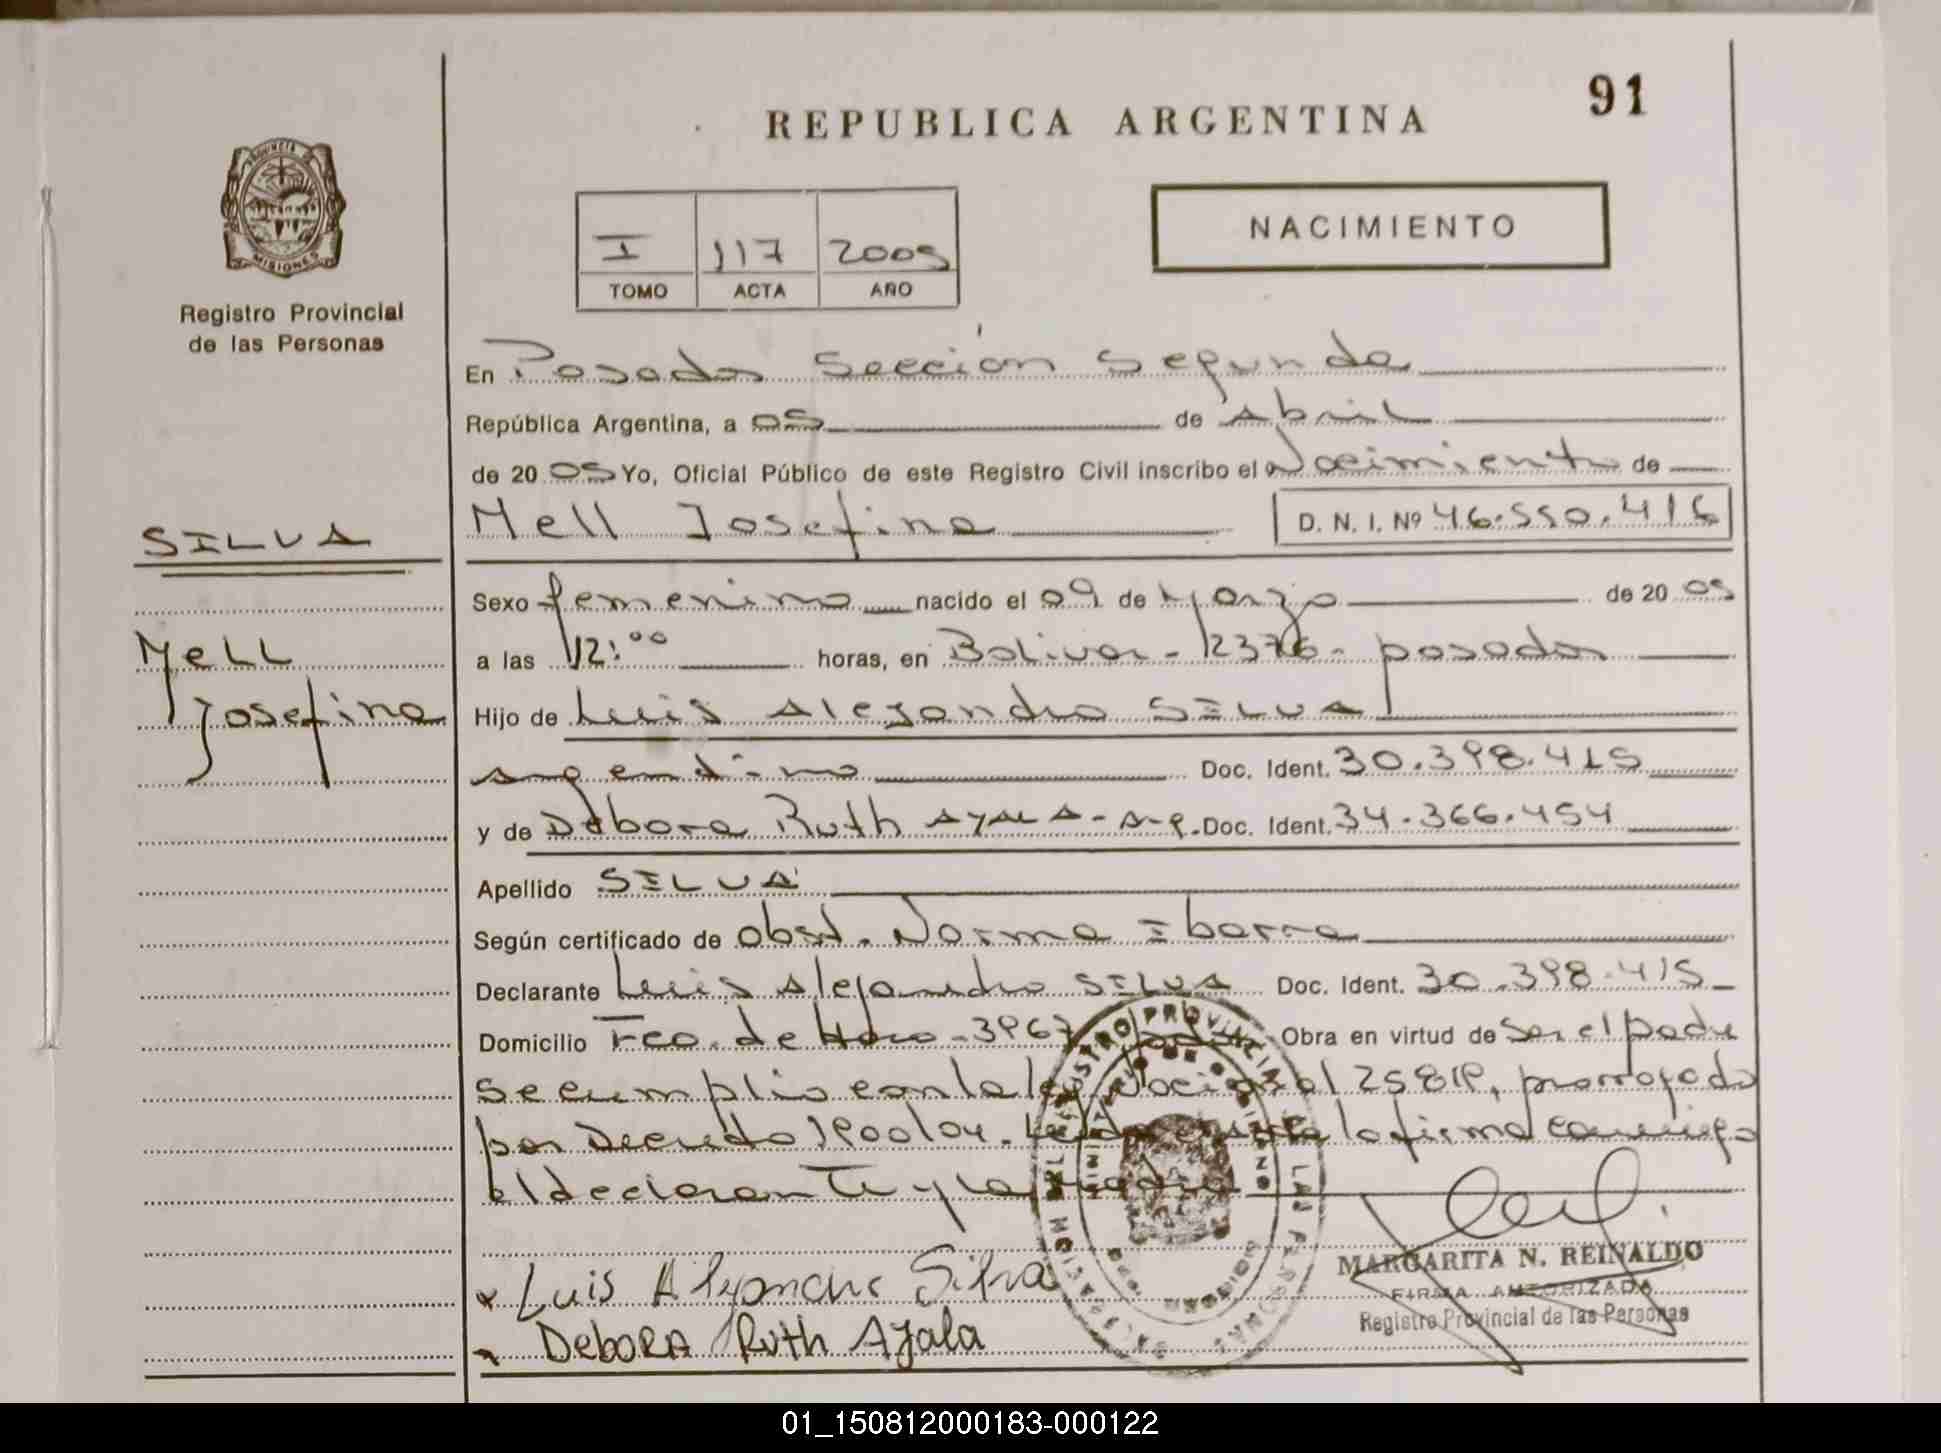 91
REPUBLICA ARGENTINA
PROVINCIA DE
MISIONES
Registro Provincial
de las Personas
I 117 2005
TOMO ACTA AÑO
NACIMIENTO
En Posadas Sección Segunda
República Argentina, a 05 de Abril
de 20 05 Yo, Oficial Público de este Registro Civil inscribo el Nacimiento de
Mell Josefina D. N. I. Nº 46.550.416
SILVA
Mell
Josefina
Sexo femenino nacido el 09 de Marzo de 20 05
a las 12:00 horas, en Bolivar - 2376 - posadas
Hijo de Luis Alejandro SILVA
argentino Doc. Ident. 30.398.415
y de Débora Ruth AYALA - arg. Doc. Ident. 34.366.454
Apellido SILVA
Según certificado de obst. Norma Ibarra
Declarante Luis Alejandro SILVA Doc. Ident. 30.398.415
Domicilio Fco. de Haro - 3967 Obra en virtud de Ser el padre
se cumplio con la ley Nacional 25819, prorrogada
por Decreto 1900/04. Leida el acta la firma conmigo
el declarante y la madre
Luis Alejandro Silva
DeboRA Ruth Ayala
MARGARITA N. REINALDO
FIRMA AUTORIZADA
Registro Provincial de las Personas
REGISTRO PROVINCIAL DE LAS PERSONAS
MINISTERIO DE GOBIERNO
01_150812000183-000122